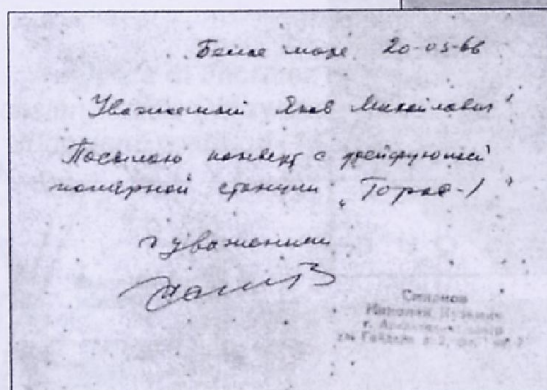 Белое море 20-05-66
Уважаемый Яков Михайлович!
Посылаю конверт с дрейфующей
полярной станции „Торос-1"
с уважением
Симонов
Николай Кузьмич
г. Архангельск
ул Гайдара